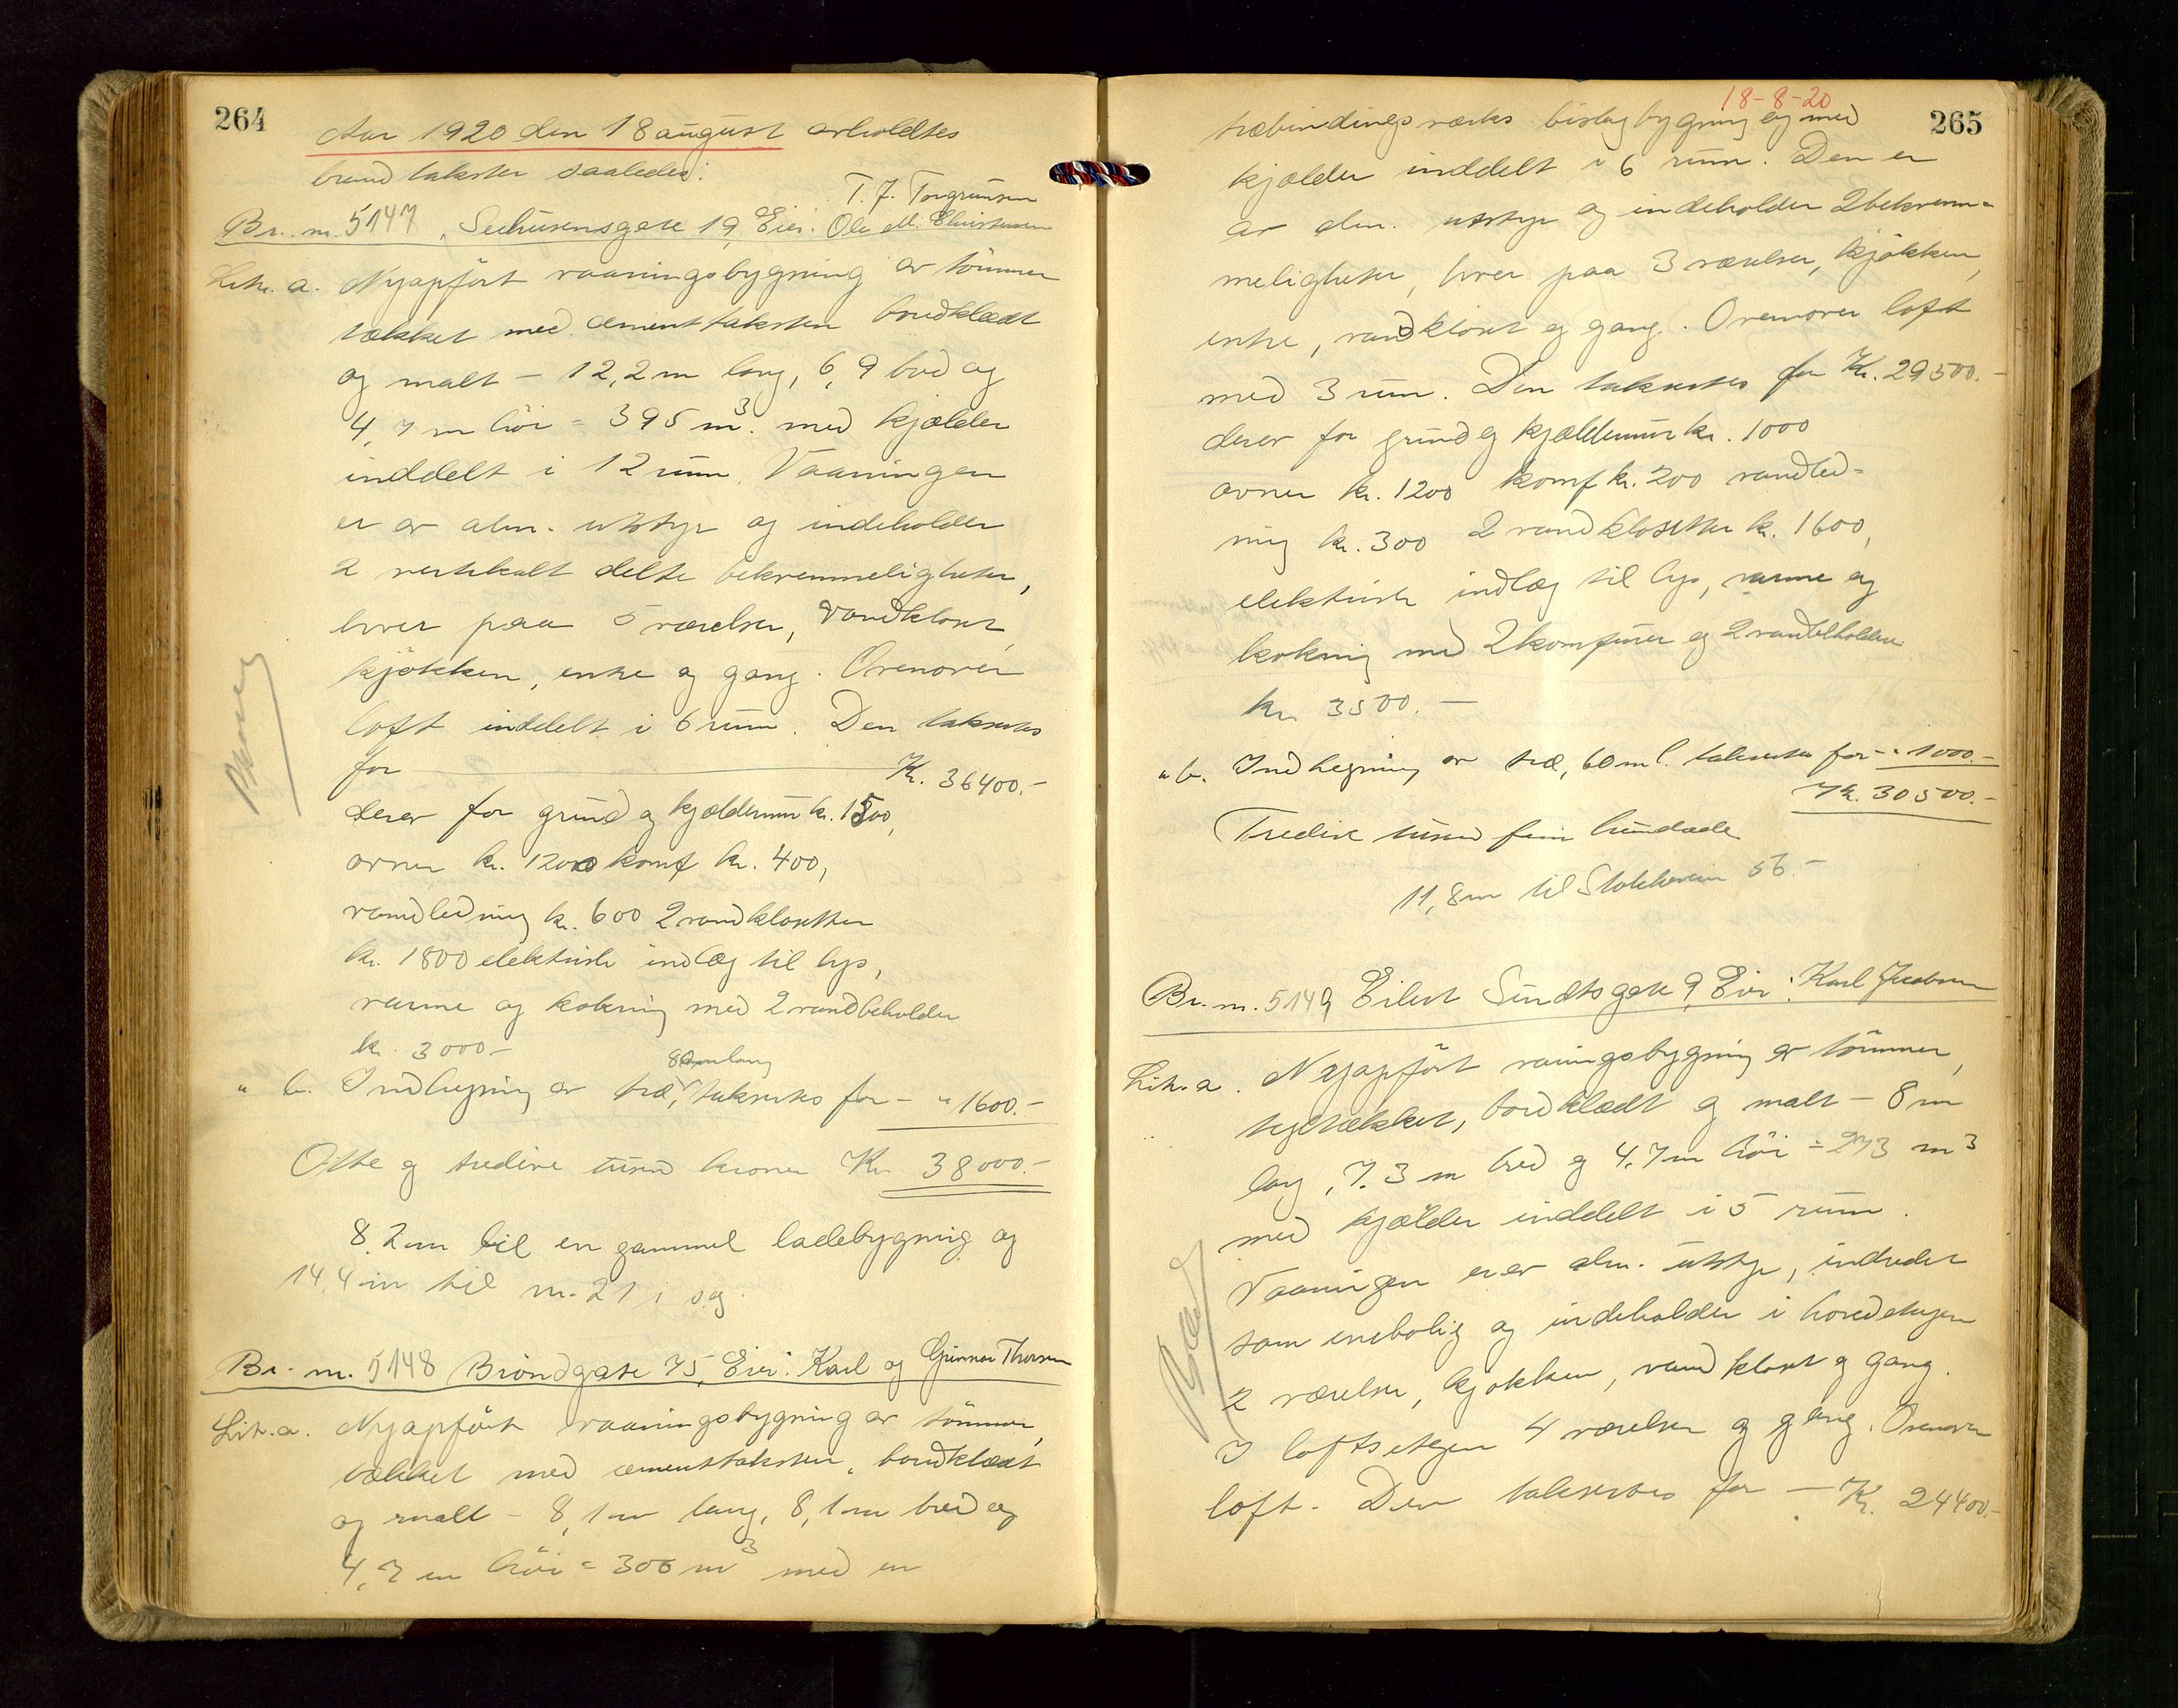 264
Aar 1920 den 18 august avholdtes
brandtakster saaledes:
T. J. Torgrimsen
Br. nr. 5147, Seehusensgate 19, Eier: Ole M. Christensen
Litr. a. Nyopført vaaningsbygning av tømmer
tækket med cementtaksten bordklædt
og malt - 12,2 m lang, 6,9 bred og
4,7 m høi = 395 m³. med kjælder
inddelt i 12 rum. Vaaningen
er av alm. utstyr og indeholder
2 vertikalt delte bekvemmeligheter,
hver paa 5 værelser, vandkloset,
kjøkken, entre og gang. Ovenover
loft inddelt i 6 rum. Den takseres
for Kr. 36400.-
derav for grund og kjældermur kr. 1500,
ovner kr. 1200 komf kr. 400,
vandledning kr. 600 2 vandklosetter
kr. 1800 elektrisk indlæg til lys,
varme og kokning med 2 vandbeholder
kr. 3000.-
80 m lang
" b. Indhegning av træ, takseres for - " 1600.-
Otte og tredive tusen kroner Kr. 38000.-
8,2 m til en gammel ladebygning og
14,4 m til nr. 21 i s.g.
Br. nr. 5148 Brøndgate 75, Eier: Karl og Gunnar Thorsen
Litr. a. Nyopført vaaningsbygning av tømmer,
tækket med cementtaksten, bordklædt
og malt - 8,1 m lang, 8,1 m bred og
4,7 m høi = 306 m³ med en
18-8-20
265
træbindingsverks bislagbygning og med
kjælder inddelt i 6 rum. Den er
av alm. utstyr og indeholder 2 bekvem-
meligheter, hver paa 3 værelser, kjøkken,
entre, vandkloset og gang. Ovenover loft
med 3 rum. Den takseres for Kr. 29500.-
derav for grund og kjældermur kr. 1000
ovner kr. 1200 komf kr. 200 vandled-
ning kr. 300 2 vandklosetter kr. 1600,
elektrisk indlæg til lys, varme og
kokning med 2 komfurer og 2 vandbeholdere
kr. 3500.-
" b. Indhegning av træ, 60 m l. takseres for - " 1000.-
Kr. 30500.-
Tredive tusen fem hundrede
11,8 m til Stokkaveien 56.-
Br. nr. 5149 Eilert Sundts gate 9, Eier: Karl Jacobsen
Litr. a. Nyopført vaaningsbygning av tømmer,
tegltækket, bordklædt og malt - 8 m
lang, 7,3 m bred og 4,7 m høi = 273 m³
med kjælder inddelt i 5 rum.
Vaaningen er av alm. utstyr, indredet
som enebolig og indeholder i hovedetagen
2 værelser, kjøkken, vandkloset og gang.
I loftsetagen 4 værelser og gang. Ovenover
loft. Den takseres for - Kr. 24400.-